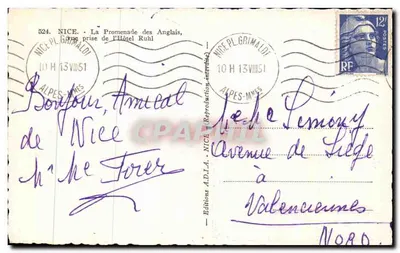 524. NICE. - La Promenade des Anglais,
vue prise de l'Hôtel Ruhl
NICE PL. GRIMALDI
10 H 13 VIII 51
ALPES-MMES
NICE PL. GRIMALDI
10 H 13 VIII 51
ALPES-MMES
12F
POSTES
RF
Bonjour, Amical
de Nice
Mr Me Forer
Editions A.D.I.A. - NICE (Reproduction interdite)
Mr & Me Lémony
Avenue de Liège
à
Valenciennes
NORD.